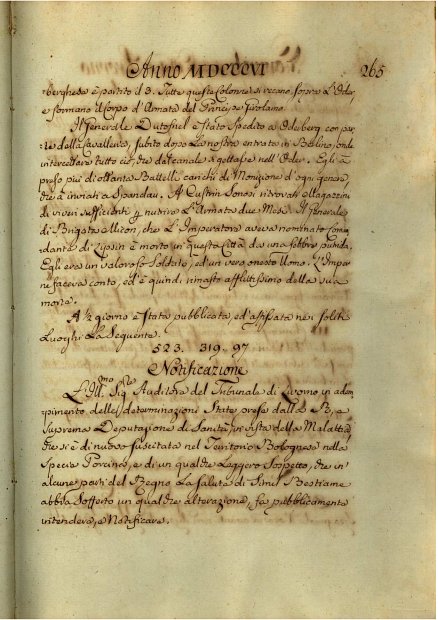 Anno MDCCCVI 265
berghese è partito il 3. Tutte queste Colonne si recano sopra l'Oder,
e formano il Corpo d'Armata del Principe Girolamo.
Il Generale Dutosnel è Stato Spedito a Oderberg con par=
te della Cavalleria, subito dopo la nostra entrata in Berlino, onde
intercettare tutto ciò, che dal canale si gettasse nell'Oder. Egli à
preso più di ottanta Battelli carichi di Munizione d'ogni genere,
che à inviati a Spandau. A Custrin Sonosi ritrovati Magazzini
di viveri sufficienti p nutrire L'Armata due Mesi. Il Generale
di Brigata Macon, che L'Imperatore aveva nominato Coman
dante di Lipsia è morto in questa Città da una febbre putrida.
Egli era un valoroso Soldato, ed un vero onesto Uomo. L'Impe
ne faceva conto, ed è quindi rimasto afflittissimo della sua
morte.
A giorno è Stata pubblicata, ed affissata nei Soliti
Luoghi La Seguente.
523. 319. 97
Notificazione
L'Ill.mo Sig.e Auditore del Tribunale di Livorno in adem
pimento delle determinazioni State prese dalla R, e
Suprema Deputazione di Sanità in vista della Malattia
che si è di nuovo suscitata nel Territorio Bolognese nella
Specie Porcina, e di un qualche Leggero Sospetto, che in
alcune parti del Regno La Salute di Simil Bestiame
abbia Sofferto un qualche alterazione, fa pubblicamente
intendere, e Notificare.